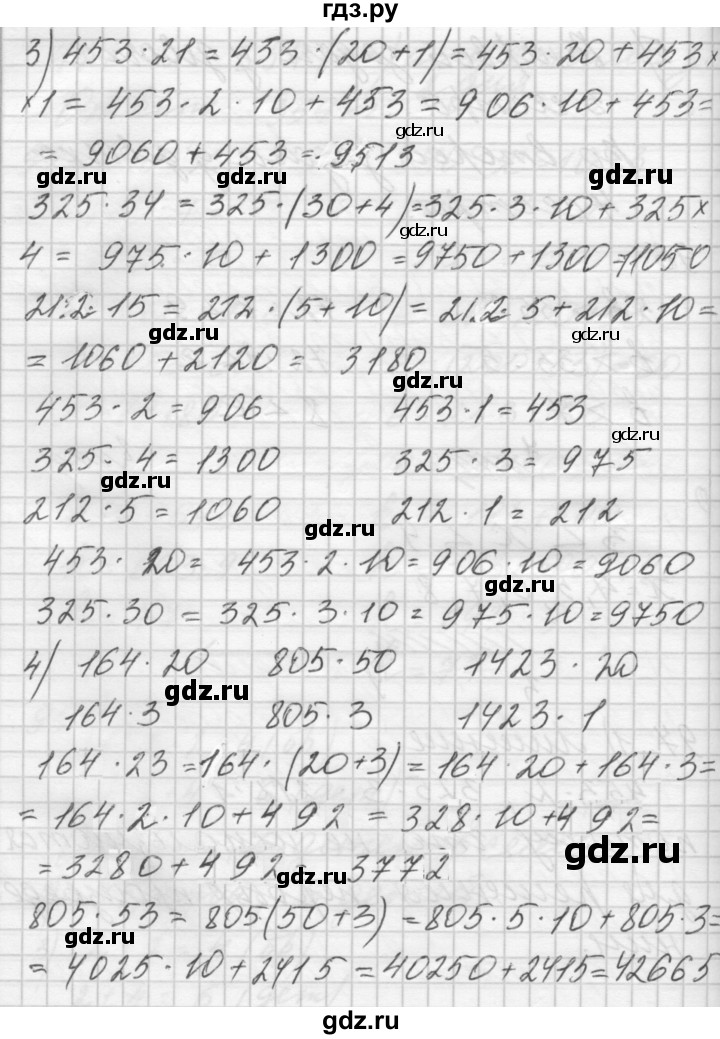 гдз.ру
3) 453·21 = 453·(20+1) = 453·20 + 453×
×1 = 453·2·10 + 453 = 906·10 + 453 =
gdz.ru
= 9060 + 453 = 9513
gdz.ru gdz.ru gdz.ru
325·34 = 325·(30+4) = 325·3·10 + 325×
gdz.ru
4 = 975·10 + 1300 = 9750 + 1300 = 11050
212·15 = 212·(5+10) = 212·5 + 212·10 =
gdz.ru gdz.ru
= 1060 + 2120 = 3180
gdz.ru
453·2 = 906 453·1 = 453
gdz.ru
325·4 = 1300 325·3 = 975
gdz.ru
212·5 = 1060 212·1 = 212
gdz.ru
453·20 = 453·2·10 = 906·10 = 9060
gdz.ru
325·30 = 325·3·10 = 975·10 = 9750
4) 164·20 805·50 1423·20
gdz.ru
164·3 805·3 1423·1
164·23 = 164·(20+3) = 164·20 + 164·3 =
= 164·2·10 + 492 = 328·10 + 492 =
gdz.ru
= 3280 + 492 = 3772
gdz.ru
805·53 = 805(50+3) = 805·5·10 + 805·3 =
gdz.ru
= 4025·10 + 2415 = 40250 + 2415 = 42665
gdz.ru